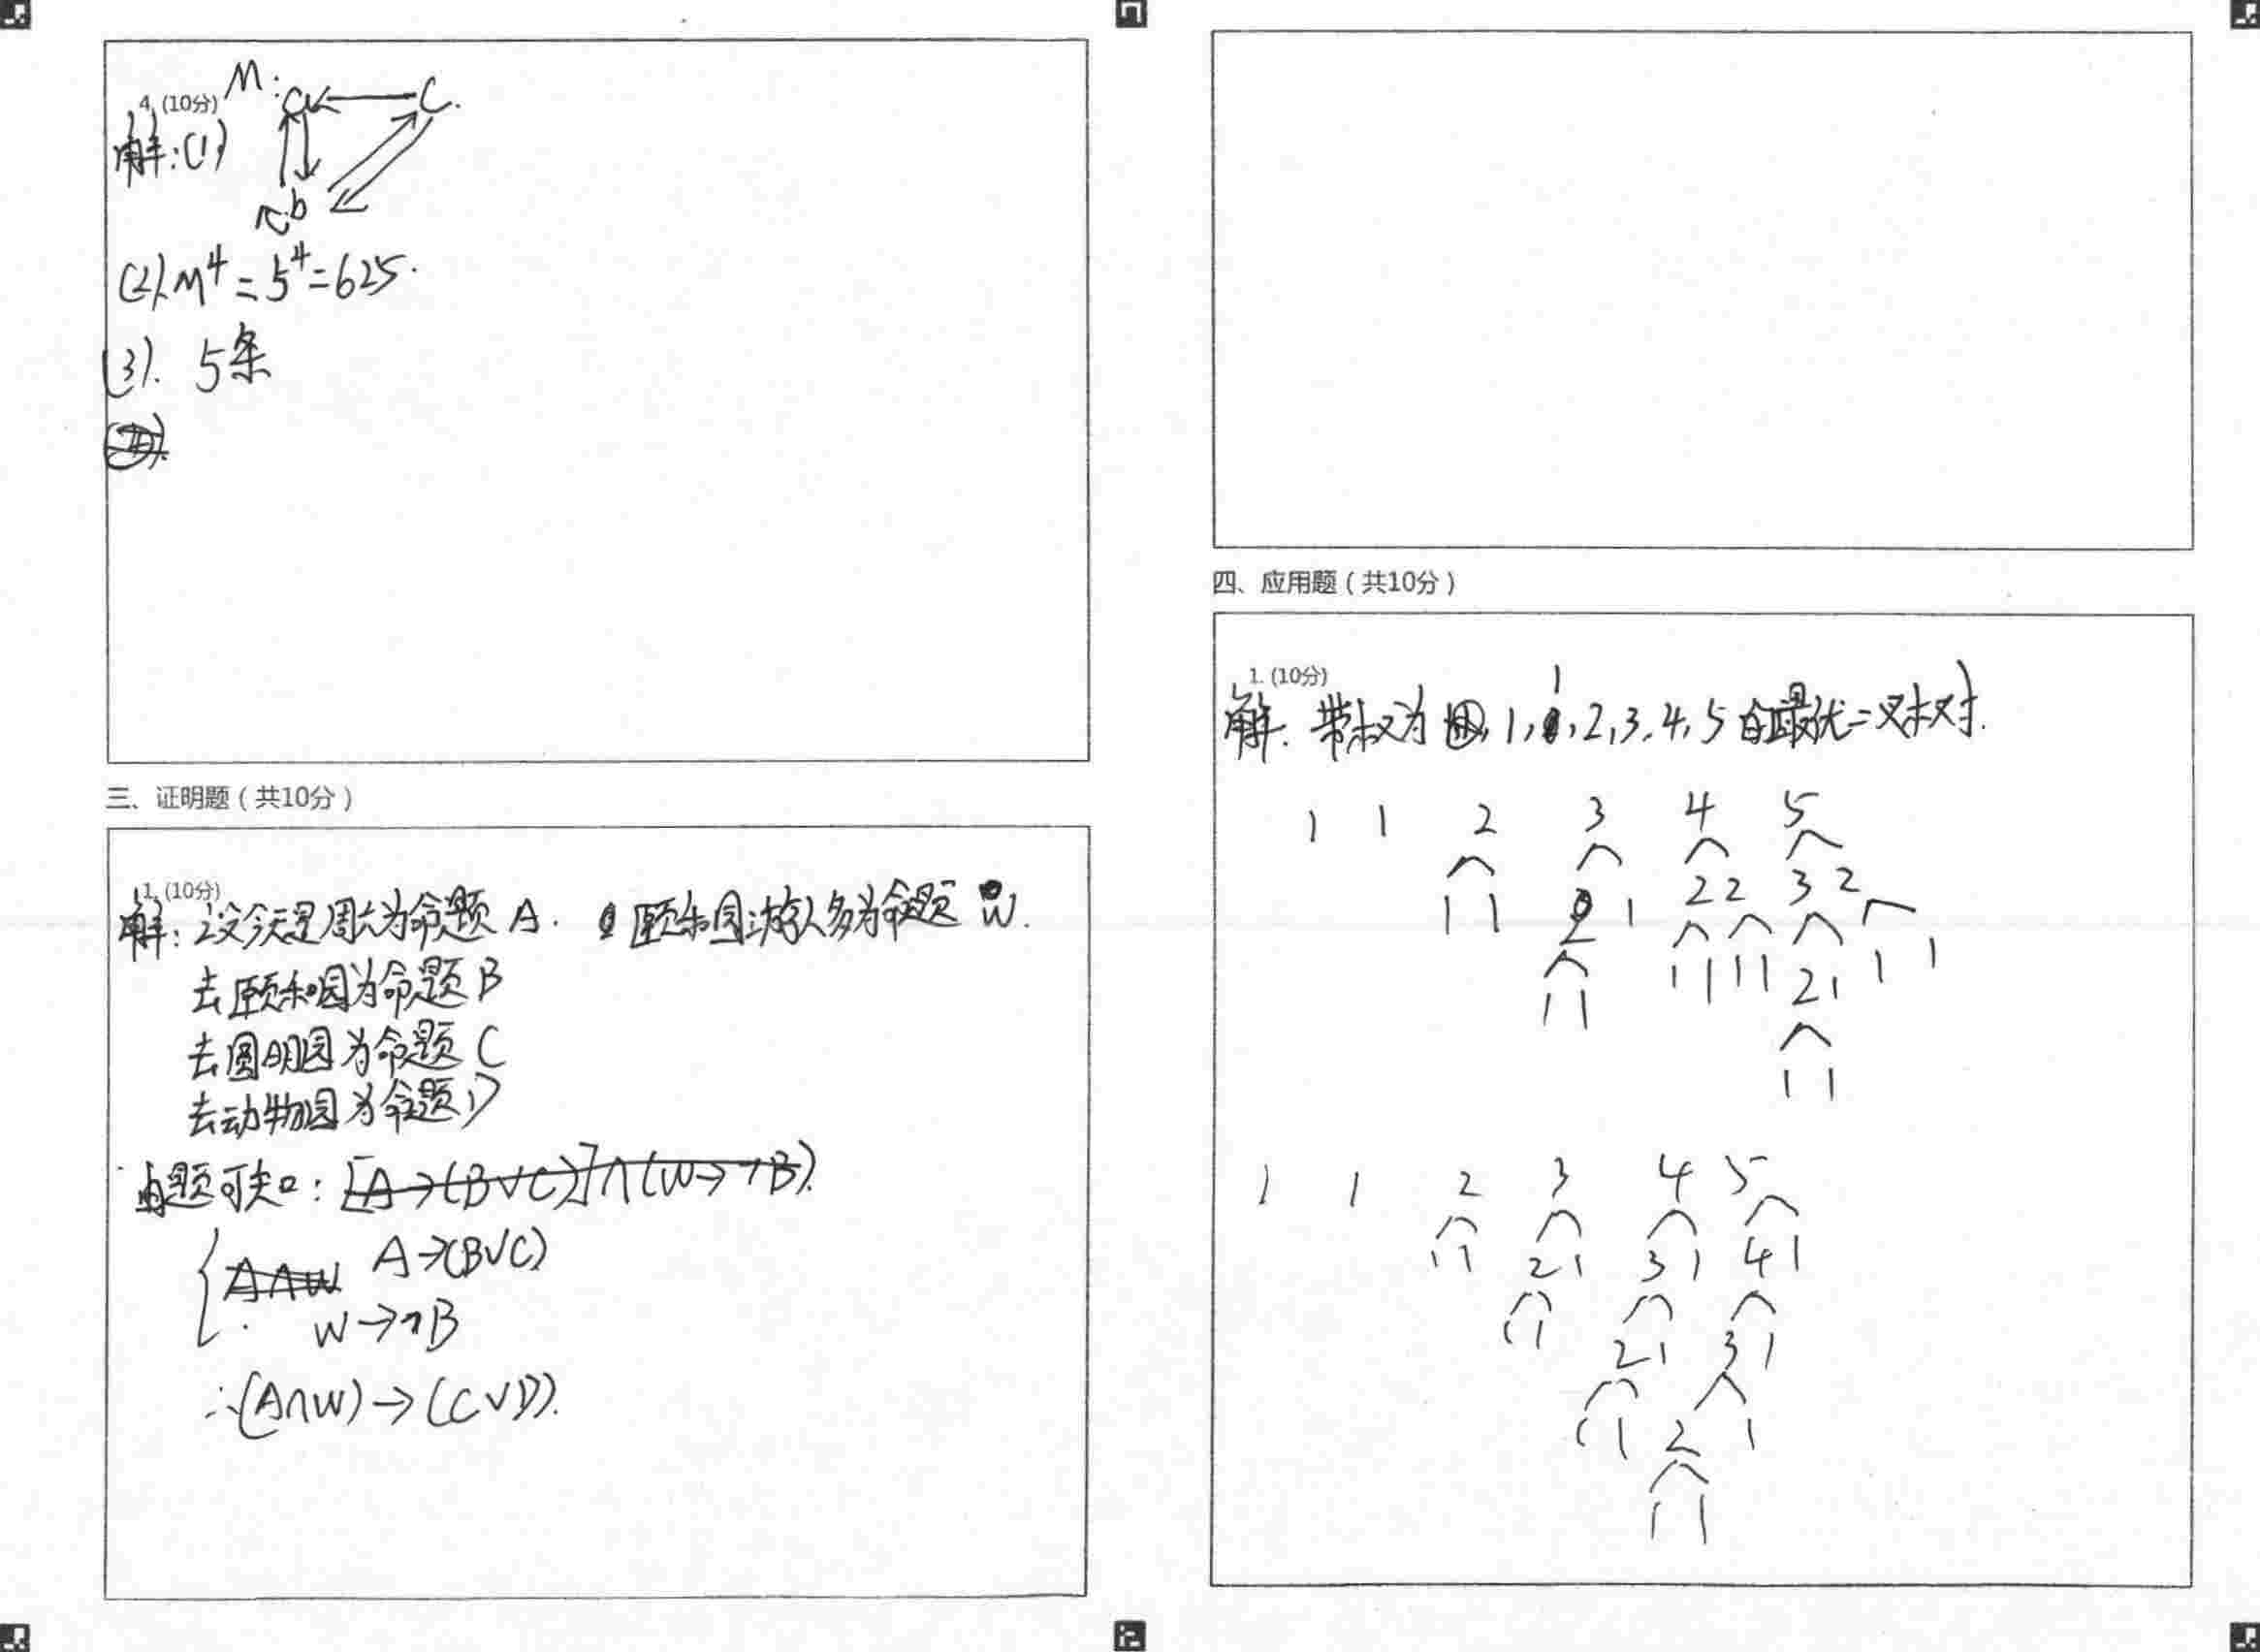 4. (10分)
M:
a c.
解:(1)
b
(2). M⁴ = 5⁴ = 625.
(3). 5条
三、证明题(共10分)
1. (10分)
解: 设今天是周六为命题 A. 颐和园游人多为命题 W.
去颐和园为命题 B
去圆明园为命题 C
去动物园为命题 D
由题可知: [A→(B∨C)]∧(W→¬B).
A∧W A→(B∨C)
W→¬B
∴(A∧W)→(C∨D).
四、应用题(共10分)
1. (10分)
解. 带权为 1, 1, 2, 3, 4, 5 的最优二叉树.
1 1 2 3 4 5
1 1 2 1 2 2 3 2
1 1 1 1 1 1 2 1 1 1
1 1
1 1 2 3 4 5
1 1 2 1 3 1 4 1
1 1 2 1 3 1
1 1 2 1
1 1